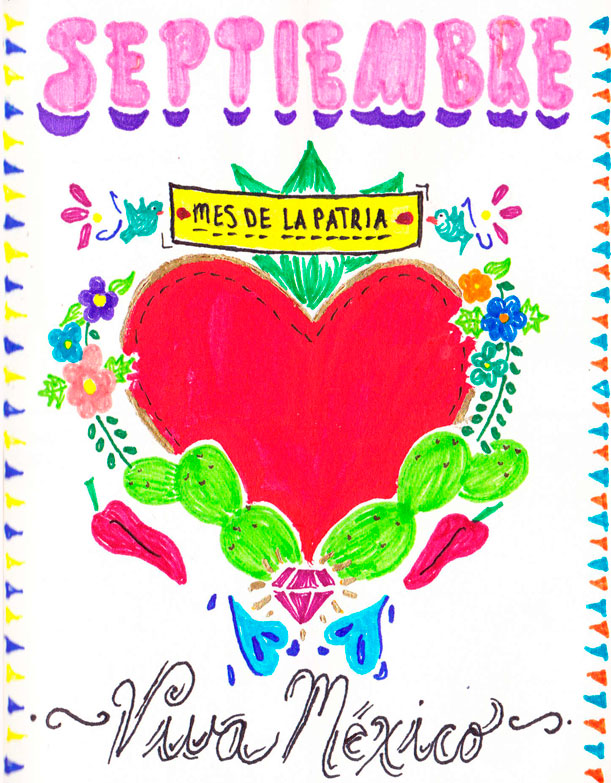 SEPTIEMBRE
MES DE LA PATRIA
Viva México